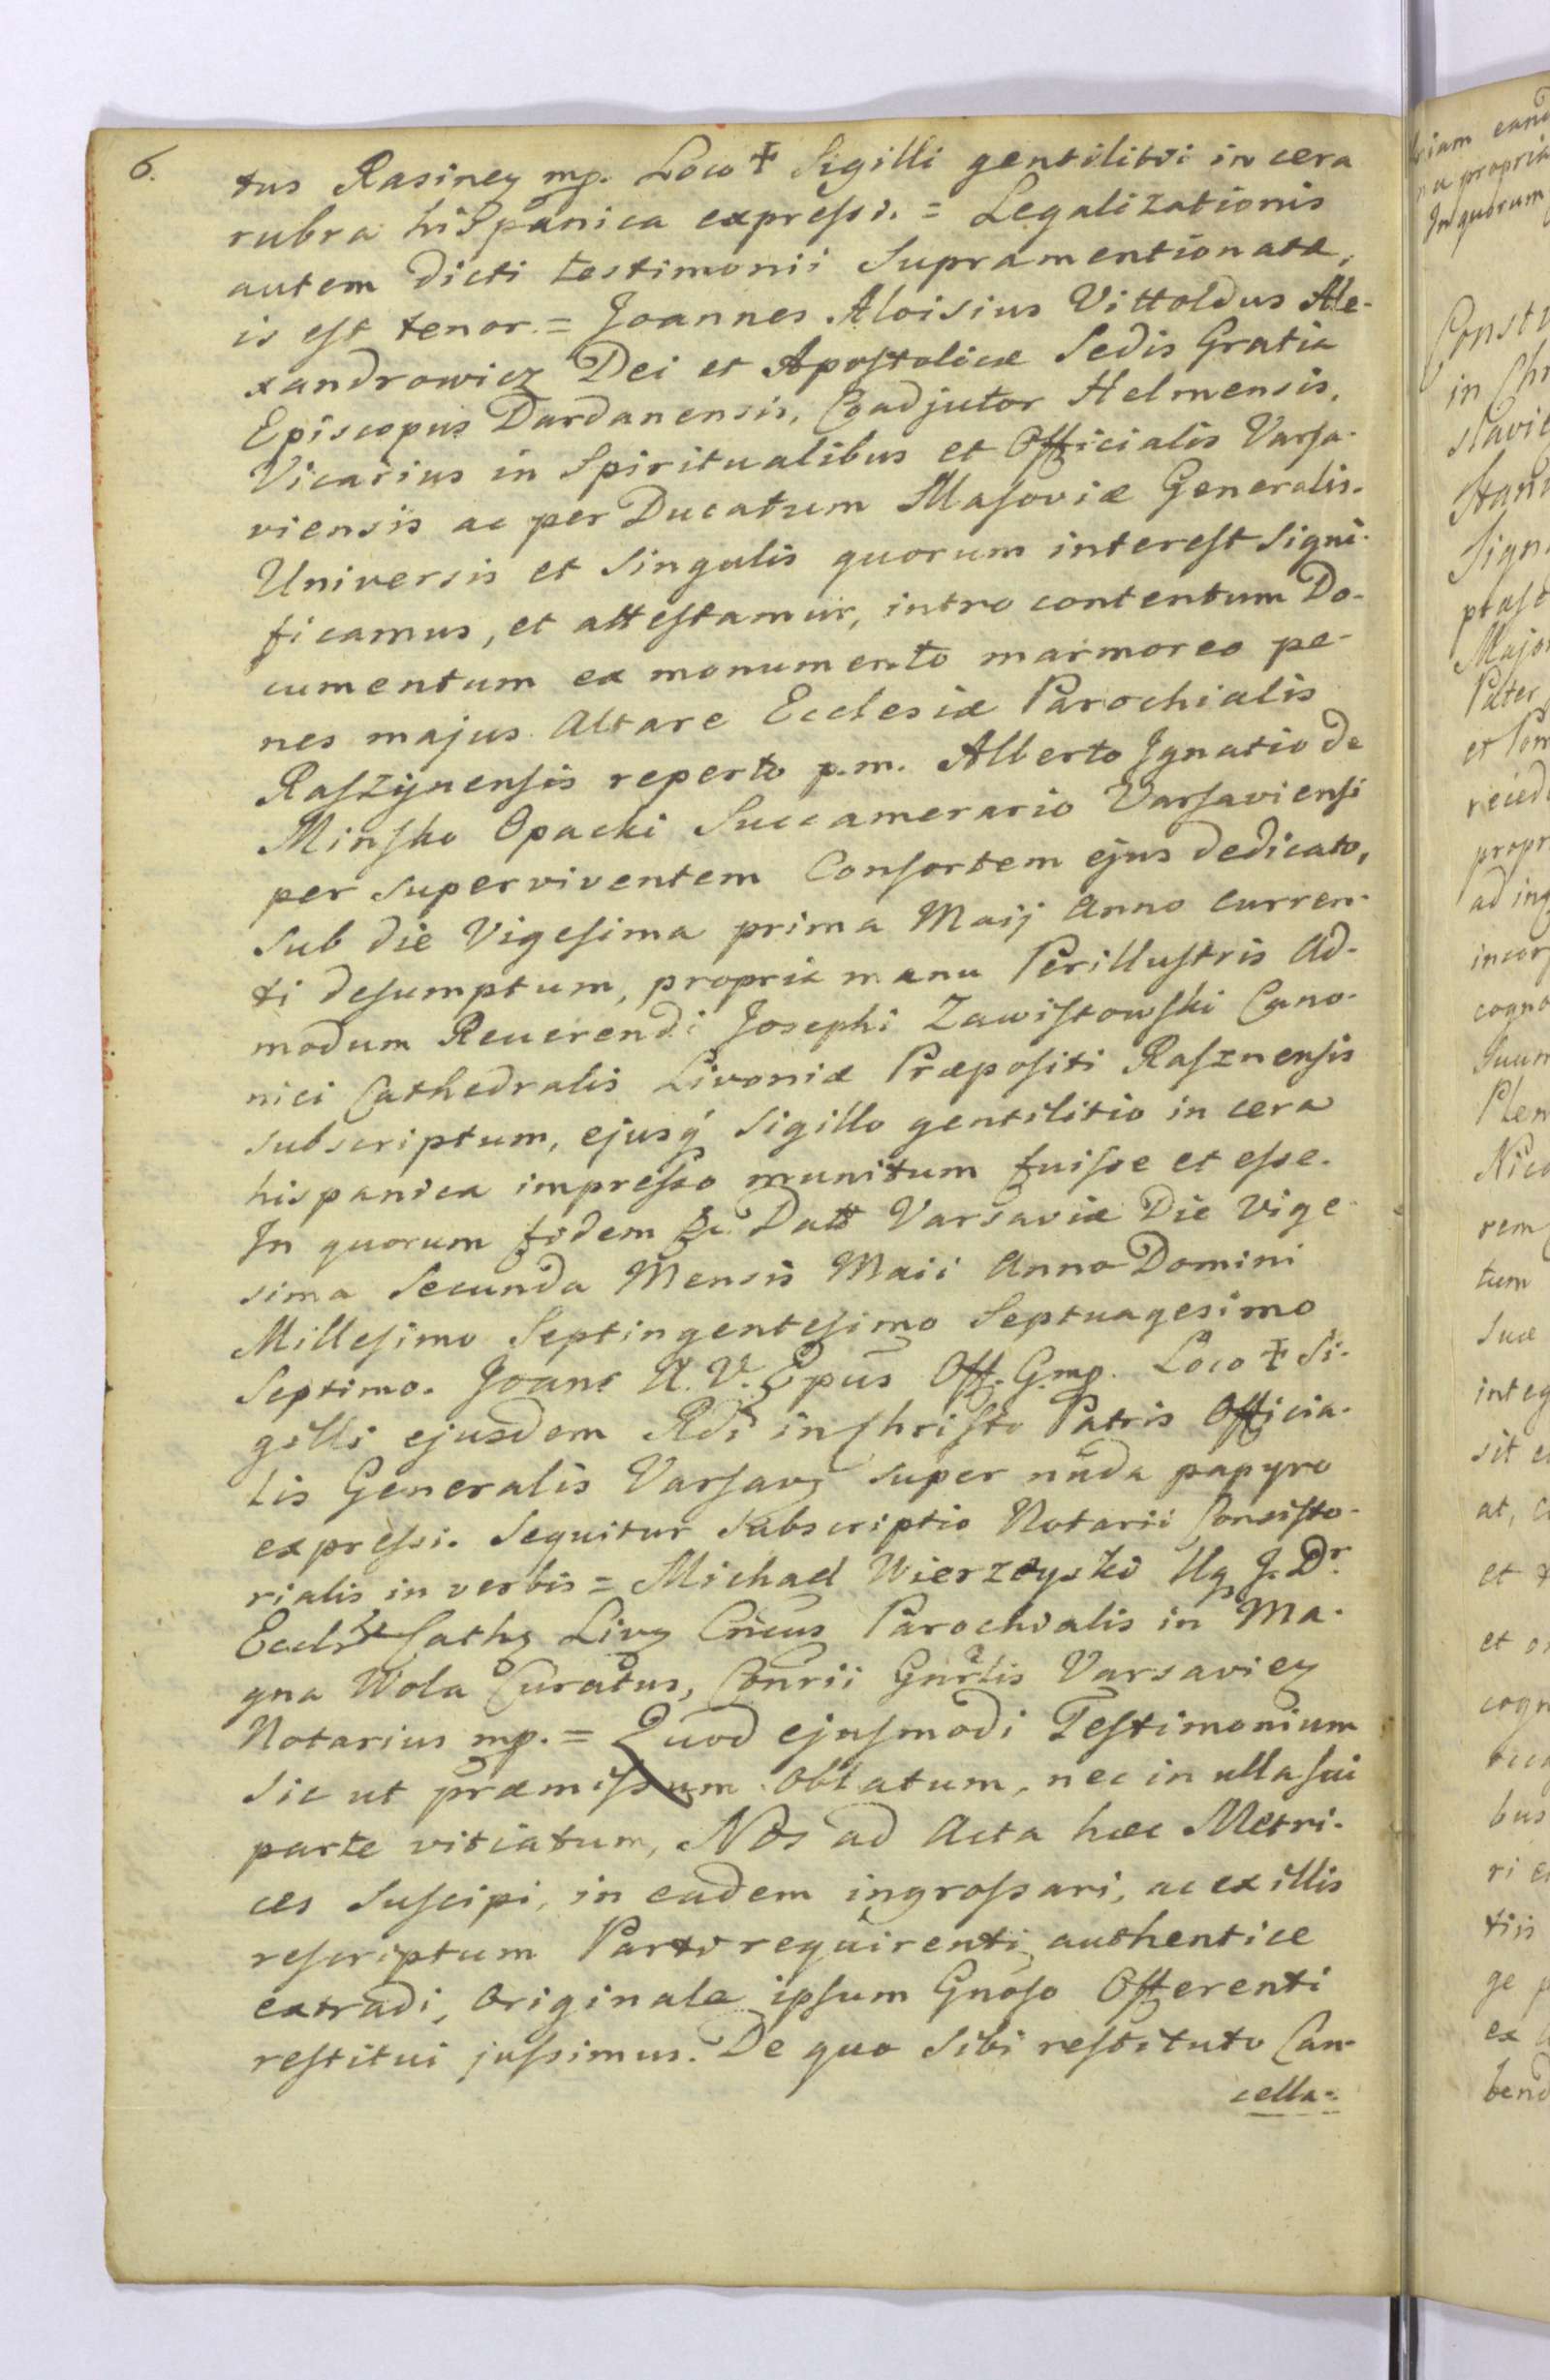 6.
tus Rasiney mp. Loco ‡ Sigilli gentilitii in cera
rubra hispanica expreſsi. = Legalizationis
autem dicti testimonii supramentionatæ,
is eſt tenor. = Joannes Aloisius Vittoldus Ale-
xandrowicz Dei et Apoſtolicæ Sedis Gratia
Episcopus Dardanensis, Coadjutor Helmensis,
Vicarius in Spiritualibus et Officialis Varſa-
viensis ac per Ducatum Maſoviæ Generalis.
Universis et singulis quorum intereſt signi-
ficamus, et atteſtamur, intro contentum Do-
cumentum ex monumento marmoreo pe-
nes majus Altare Ecclesiæ Parochialis
Raſzÿnenſis reperto p.m. Alberto Jgnatio de
Minſko Opacki Succamerario Varſavienſi
per superviventem Conſortem ejus dedicato,
sub die Vigeſima prima Maij Anno curren-
ti deſumptum, propria manu Perilluſtris Ad-
modum Reuerendi Josephi Zawiſtowſki Cano-
nici Cathedralis Livoniæ Præpoſiti Raſznenſis
subscriptum, ejusq́ sigillo gentilitio in cera
hispanica impreſso munitum fuiſse et eſse.
In quorum fidem &c. Datt Varsaviæ Die Vige-
sima Secunda Mensis Maii Anno Domini
Milleſimo Septingenteſimo Septuagesimo
Septimo. Joans A. V. Epus Off. G. mp. Loco ‡ Si-
gilli ejusdem Rdi in Chriſto Patris Officia-
lis Generalis Varſavẏ super nuda papyro
expreſsi. Sequitur subscriptio Notarii Conſiſto-
rialis in verbis = Michael Wierzbyski J. Dr.
Eccl Cath Liv Cnicus Parochialis in Ma-
gna Wola Curatus, Conrii Gnrlis Varsavieῃ
Notarius mp. = Quod ejuſmodi Teſtimonium
sic ut præmiſsum oblatum, nec in ulla ſui
parte vitiatum, Nos ad Acta hæc Metri-
ces suſcipi, in eadem ingroſsari, ac ex illis
reſcriptum Parti requirenti authentice
extradi, Originale ipſum Gnoſo Offerenti
reſtitui juſsimus. De quo sibi reſtituto Can-
cella-
riam
na propria
In quorum
Constu
in Chr
slavie
Stani
Sign
ptaſt
Major
Pater
et Pom
propr
ad ing
incor
cogno
Suum
Plen
Nico
rem
tum
suæ
integ
sit e
at, c
et
et o
cogn
bus
ri e
tiis
ge p
ex
bend